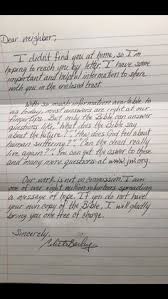 Dear neighbor,
I didn't find you at home, so I'm
hoping to reach you by letter. I have some
important and helpful information to share
with you in the enclosed tract.
With so much information available to
us today, most answers are right at our
fingertips. But only the Bible can answer
questions like, "What does the Bible say
about the future?", "How does God feel about
human suffering?", "Can the dead really
live again?" You can get the answer to these
and many more questions at www.jw.org.
Our work is not on commission. I am
one of over eight million volunteers spreading
a message of hope. If you do not have
your own copy of the Bible, I will gladly
bring you one free of charge.
Sincerely,